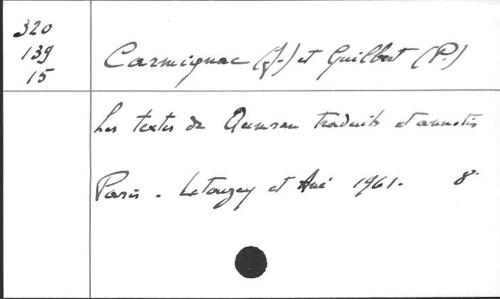 320
139
15
Carmignac (J.) et Guilbert (P.)
Les textes de Qumran traduits et annotés
Paris - Letouzey et Ané 1961. 8°